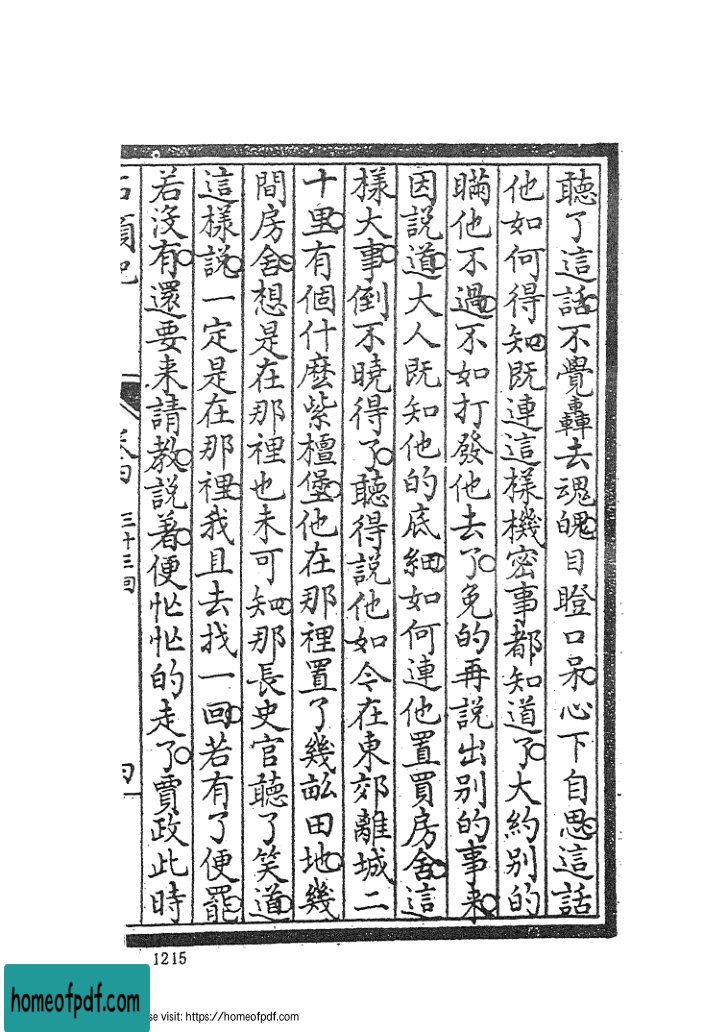 聽了這話不覺轟去魂魄目瞪口呆心下自思這話
他如何得知既連這樣機密事都知道了大約別的
瞞他不過不如打發他去了免的再說出別的事来
因說道大人既知他的底細如何連他置買房舍這
樣大事倒不曉得了聽得說他如今在東郊離城二
十里有個什麽紫檀堡他在那裡置了幾畝田地幾
間房舍想是在那裡也未可知那長史官聽了笑道
這樣說一定是在那裡我且去找一回若有了便罷
若没有還要来請教說着便忙忙的走了賈政此時
三十三回
1215
homeofpdf.com
se visit: https://homeofpdf.com